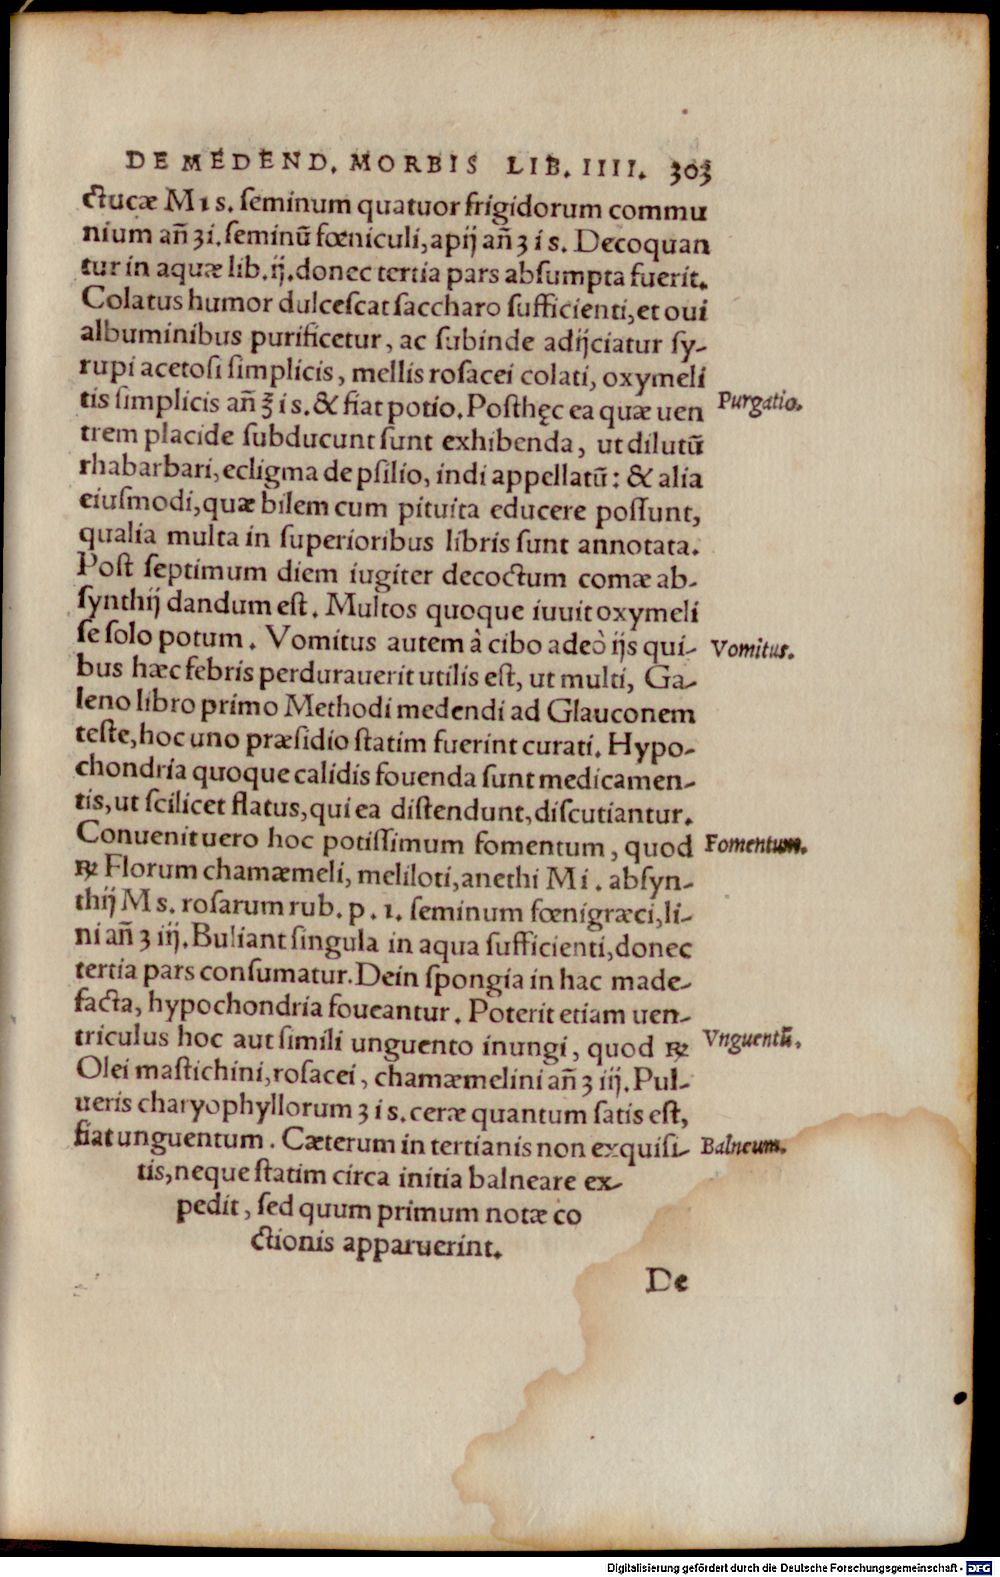 DE MEDEND. MORBIS LIB. IIII. 303
ctucæ M ı s. ſeminum quatuor frigidorum commu
nium añ ʒ i. ſeminũ fœniculi, apij añ ʒ i s. Decoquan
tur in aquæ lib. ij. donec tertia pars abſumpta fuerit.
Colatus humor dulceſcat ſaccharo ſufficienti, et oui
albuminibus purificetur, ac ſubinde adijciatur ſy-
rupi acetoſi ſimplicis, mellis roſacei colati, oxymeli
tis ſimplicis añ ℥ i s. & fiat potio. Poſthęc ea quæ uen
Purgatio.
trem placide ſubducunt ſunt exhibenda, ut dilutũ
rhabarbari, ecligma de pſilio, indi appellatũ: & alia
eiuſmodi, quæ bilem cum pituita educere poſſunt,
qualia multa in ſuperioribus libris ſunt annotata.
Poſt ſeptimum diem iugiter decoctum comæ ab-
ſynthij dandum eſt. Multos quoque iuuit oxymeli
ſe ſolo potum. Vomitus autem à cibo adeò ijs qui-
Vomitus.
bus hæc febris perdurauerit utilis eſt, ut multi, Ga-
leno libro primo Methodi medendi ad Glauconem
teſte, hoc uno præſidio ſtatim fuerint curati. Hypo-
chondria quoque calidis fouenda ſunt medicamen-
tis, ut ſcilicet flatus, qui ea diſtendunt, diſcutiantur.
Conuenit uero hoc potiſſimum fomentum, quod
Fomentum.
℞ Florum chamæmeli, meliloti, anethi M i. abſyn-
thij M s. roſarum rub. p. ı. ſeminum fœnigræci, li-
ni añ ʒ iij. Buliant ſingula in aqua ſufficienti, donec
tertia pars conſumatur. Dein ſpongia in hac made-
facta, hypochondria foueantur. Poterit etiam uen-
triculus hoc aut ſimili unguento inungi, quod ℞
Vnguentũ.
Olei maſtichini, roſacei, chamæmelini añ ʒ iij. Pul-
ueris charyophyllorum ʒ i s. ceræ quantum ſatis eſt,
fiat unguentum. Cæterum in tertianis non exquiſi-
Balneum.
tis, neque ſtatim circa initia balneare ex-
pedit, ſed quum primum notæ co
ctionis apparuerint.
De
Digitalisierung gefördert durch die Deutsche Forschungsgemeinschaft - DFG